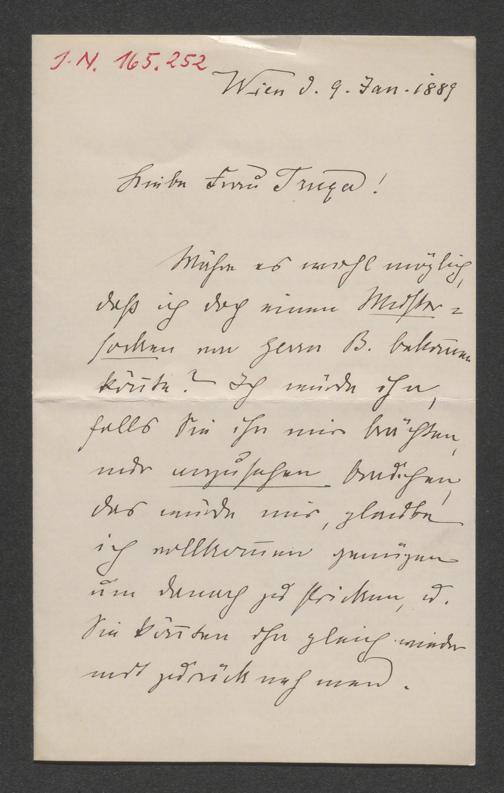 J. N. 165.252
Wien d. 9. Jan. 1889
Liebe Frau Truxa!
Wäre es wohl möglich,
daß ich doch einen Muster=
socken von Herrn B. bekommen
könnte? Ich würde ihn,
falls Sie ihn mir brächten,
nur anzusehen brauchen,
das würde mir, glaube
ich vollkommen genügen
um danach zu stricken, u.
Sie könnten ihn gleich wieder
mit zurücknehmen.